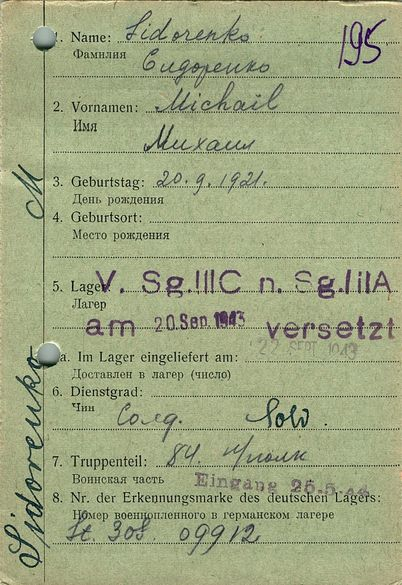 1. Name: Sidorenko
195
Фамилия
Сидоренко
2. Vornamen: Michail
Имя
Михаил
3. Geburtstag: 20.9.1921.
День рождения
4. Geburtsort:
Место рождения
5. Lager
Лагер
V. Sg.IIIC n. Sg.IIIA
am 20 Sep. 1943 versetzt
22. SEPT. 1943
a. Im Lager eingeliefert am:
Доставлен в лагер (число)
6. Dienstgrad:
Чин
Солд. Sold.
7. Truppenteil: 84
Воинская часть
Eingang 26.5.44
8. Nr. der Erkennungsmarke des deutschen Lagers:
Номер военнопленного в германском лагере
St. 308 09912
Sidorenko M